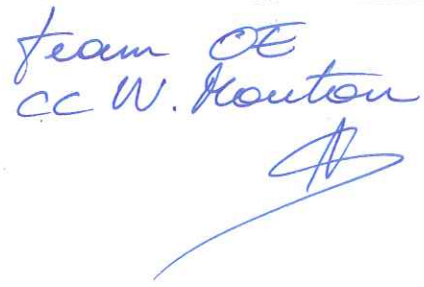 team OE
CC W. Mouton